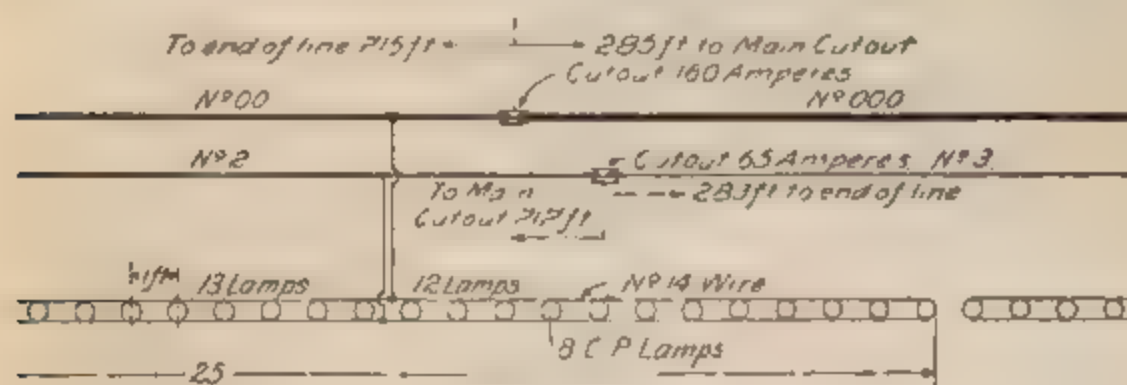 To end of line 215 ft
285 ft to Main Cutout
Cutout 160 Amperes
Nº 00
Nº 000
Nº 2
Cutout 65 Amperes Nº 3
To Main
283 ft to end of line
Cutout 217 ft
1 ft
13 Lamps
12 Lamps
Nº 14 Wire
8 C P Lamps
25